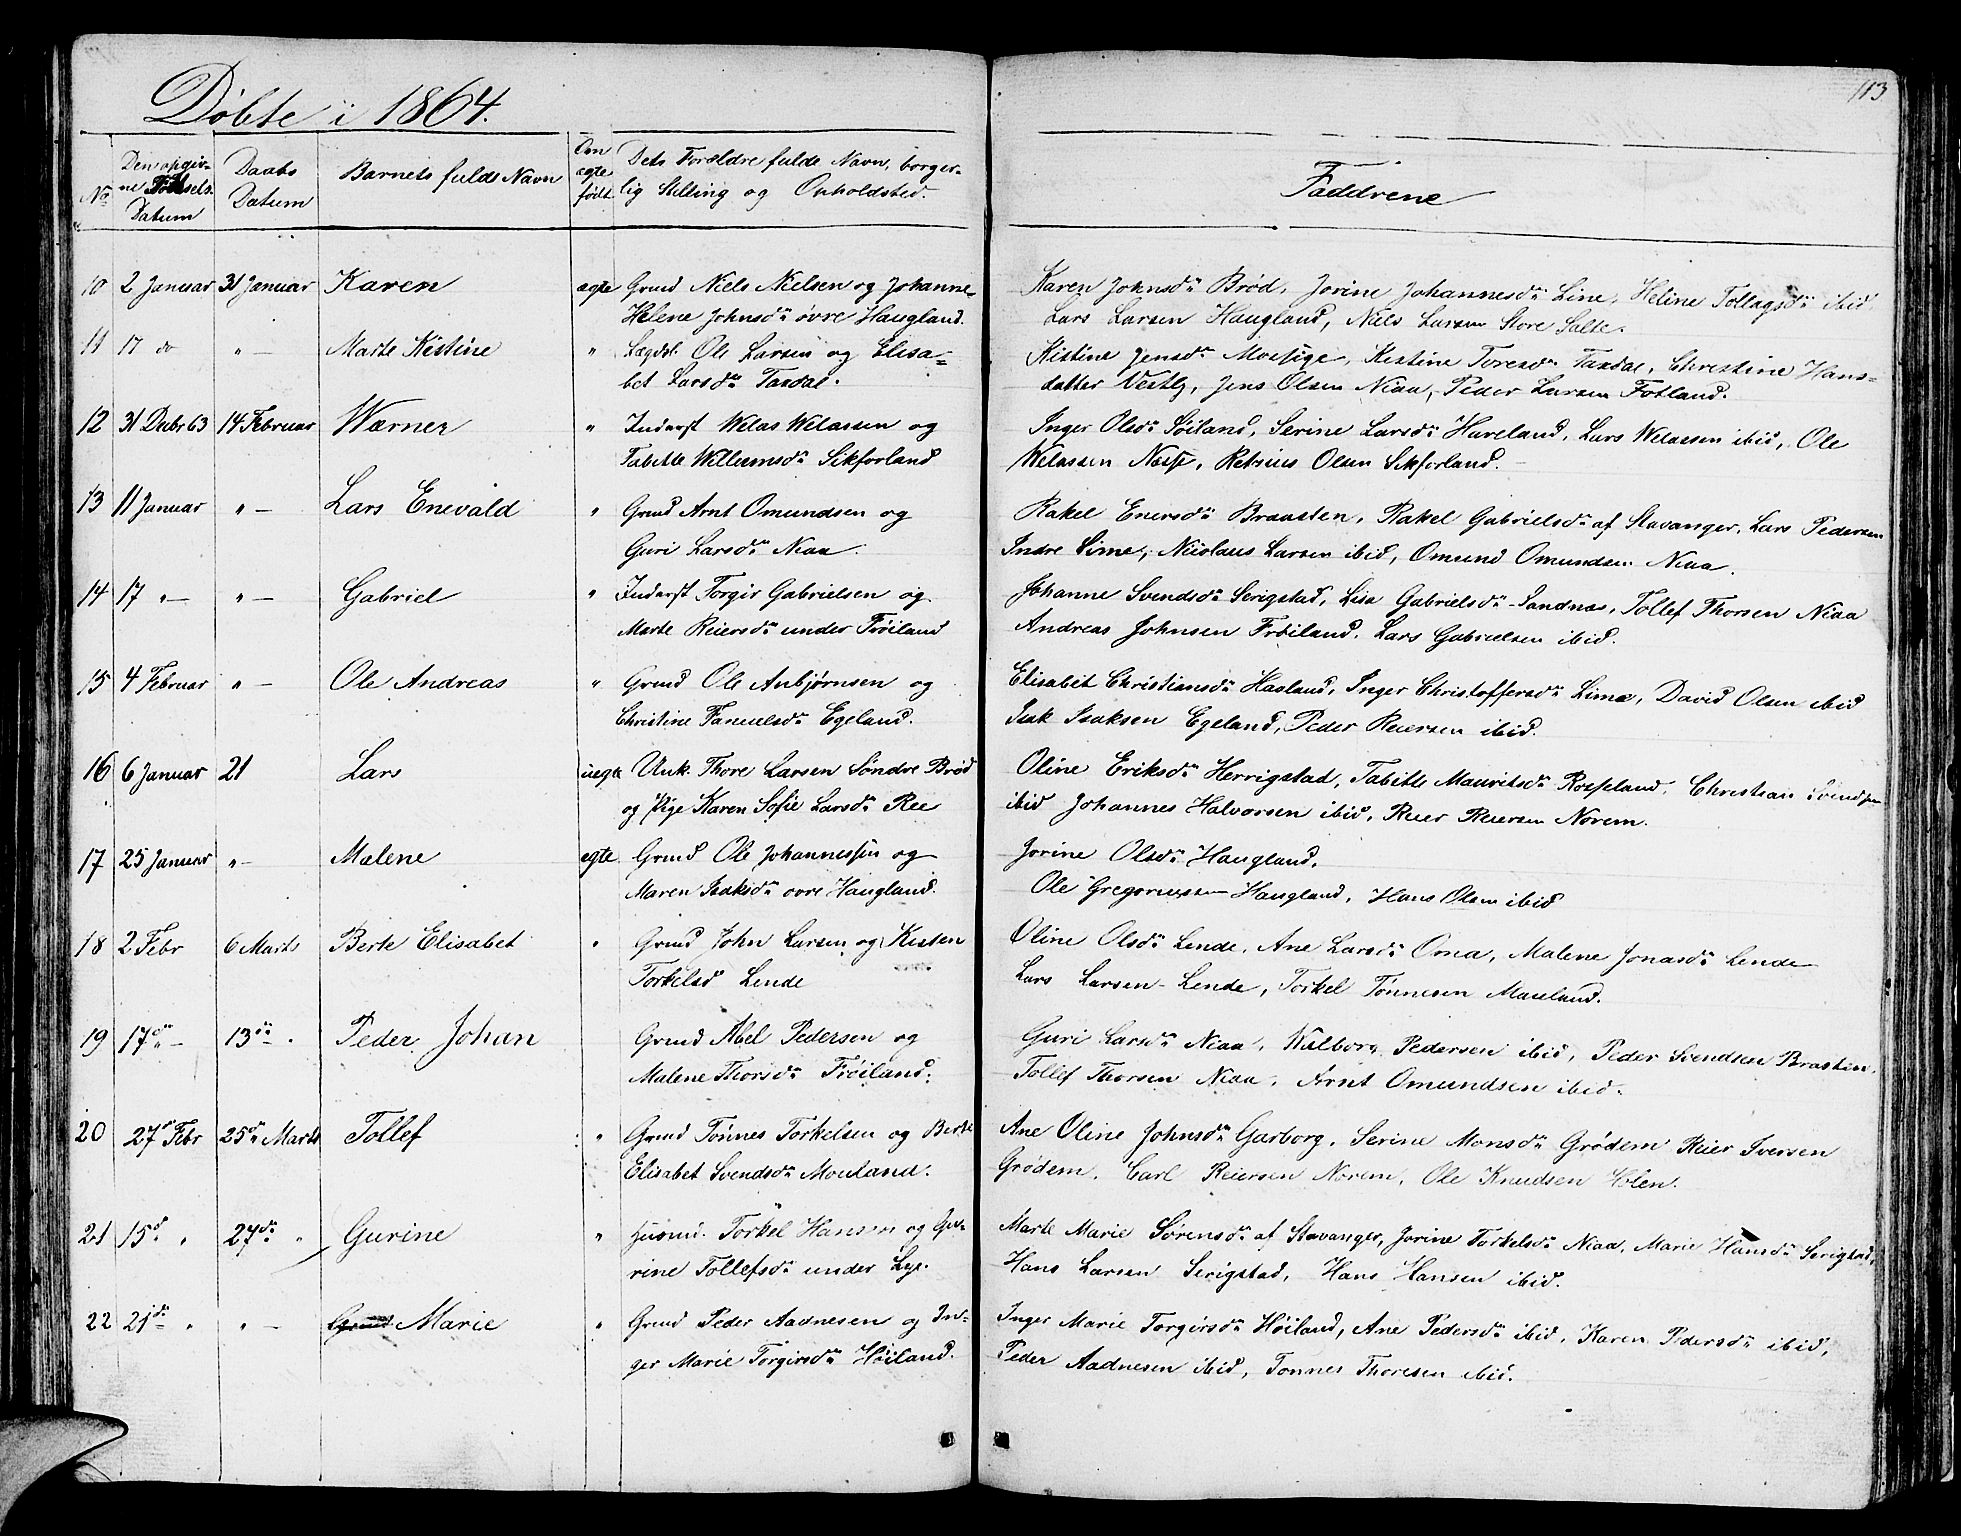 Døbte i 1864.
113
No
Den opgivne Fødsels Datum
Daabs Datum
Barnets fulde Navn
Om ægte født
Dets Forældre fulde Navn, borgerlig Stilling og Opholdsted.
Fadderne
10 2 Januar 31 Januar Karen ægte Grmd Niels Nielsen og Johanne
Helene Johnsdr øvre Haugland.
Karen Johnsdr Brød, Jorine Johannesdr Line, Heline Tollagsdr ibid,
Lars Larsen Haugland, Niels Larsen Store Salte.
11 17 do " — Marte Kistine " Lægdsl. Ole Larsen og Elisa-
bet Larsdr Taxdal.
Kistine Jensdr Moesige, Kistine Toresdr Taxdal, Christine Hans-
datter Vestly, Jens Olsen Niaa, Peder Larsen Fotland.
12 31 Decbr 63 14 Februar Wærner " Inderst Welas Welassen og
Tabitte Willumsdr Sikforland
Inger Olsdr Søiland, Serine Larsdr Haveland, Lars Welassen ibid, Ole
Welassen Næsse, Retsius Olsen Sikforland.
13 11 Januar " — Lars Enevald " Grmd Arnt Omundsen og
Guri Larsdr Niaa.
Rakel Enersdr Braasten, Rakel Gabrielsdr af Stavanger, Lars Pedersen
Indre Lime, Nicolaus Larsen ibid, Omund Omundsen Niaa.
14 17 " — " — Gabriel " Inderst Torgir Gabrielsen og
Marte Reiersdr under Frøiland
Johanne Svendsdr Serigstad, Lisa Gabrielsdr Sandnæs, Tollef Thorsen Niaa
Andreas Johnsen Frøiland, Lars Gabrielsen ibid.
15 4 Februar " — Ole Andreas " Grmd Ole Anbjørnsen og
Christine Samuelsdr Egeland.
Elisabet Christiansdr Hasland, Inger Christoffersdr Lima, David Olsen ibid
Isak Isaksen Egeland, Peder Reiersen ibid.
16 6 Januar 21 Lars uegte Unk. Thore Larsen Søndre Brød
og Pige Karen Sofie Larsdr Ree
Oline Eriksdr Herrigstad, Tabitte Mauritsdr Rosseland, Christian Svendsen
ibid Johannes Halvorsen ibid, Reier Reiersen Norem.
17 25 Januar " — Malene ægte Grmd Ole Johannessen og
Maren Isaksdr øvre Haugland.
Jorine Olsdr Haugland,
Ole Gregoriussen Haugland, Hans Olsen ibid
18 2 Febr 6 Marts Berte Elisabet " Grmd John Larsen og Kisten
Torkelsd Lende
Oline Olsdr Lende, Ane Larsdr Oma, Malene Jonasdr Lende
Lars Larsen Lende, Torkel Tønnesen Maeland.
19 17 do — 13 do Peder Johan Grmd Abel Pedersen og
Malene Thorsdr Frøiland.
Guri Larsdr Niaa, Walborg Pedersen ibid, Peder Svendsen Brasten,
Tollef Thorsen Niaa, Arnt Omundsen ibid.
20 27 Febr 25 Marts Tollef " Grmd Tønnes Torkelsen og Berte
Elisabet Svendsdr Mouland.
Ane Oline Johnsdr Garborg, Serine Monsdr Grødem Reier Iversen
Grødem, Carl Reiersen Norem, Ole Knudsen Holen.
21 15 do " 27 do " Gurine " Husmd. Torkel Hansen og Gu-
rine Tollefsdr under Lye.
Marte Marie Sørensdr af Stavanger, Jorine Torkelsdr Niaa, Marie Hansdr Serigstad,
Hans Larsen Serigstad, Hans Hansen ibid.
22 21 do " " — Marie " Grmd Peder Aadnesen og In-
ger Marie Torgirsdr Høiland.
Inger Marie Torgirsdr Høiland, Ane Pedersdr ibid, Karen Pedersdr ibid,
Peder Aadnesen ibid, Tønnes Thoresen ibid.